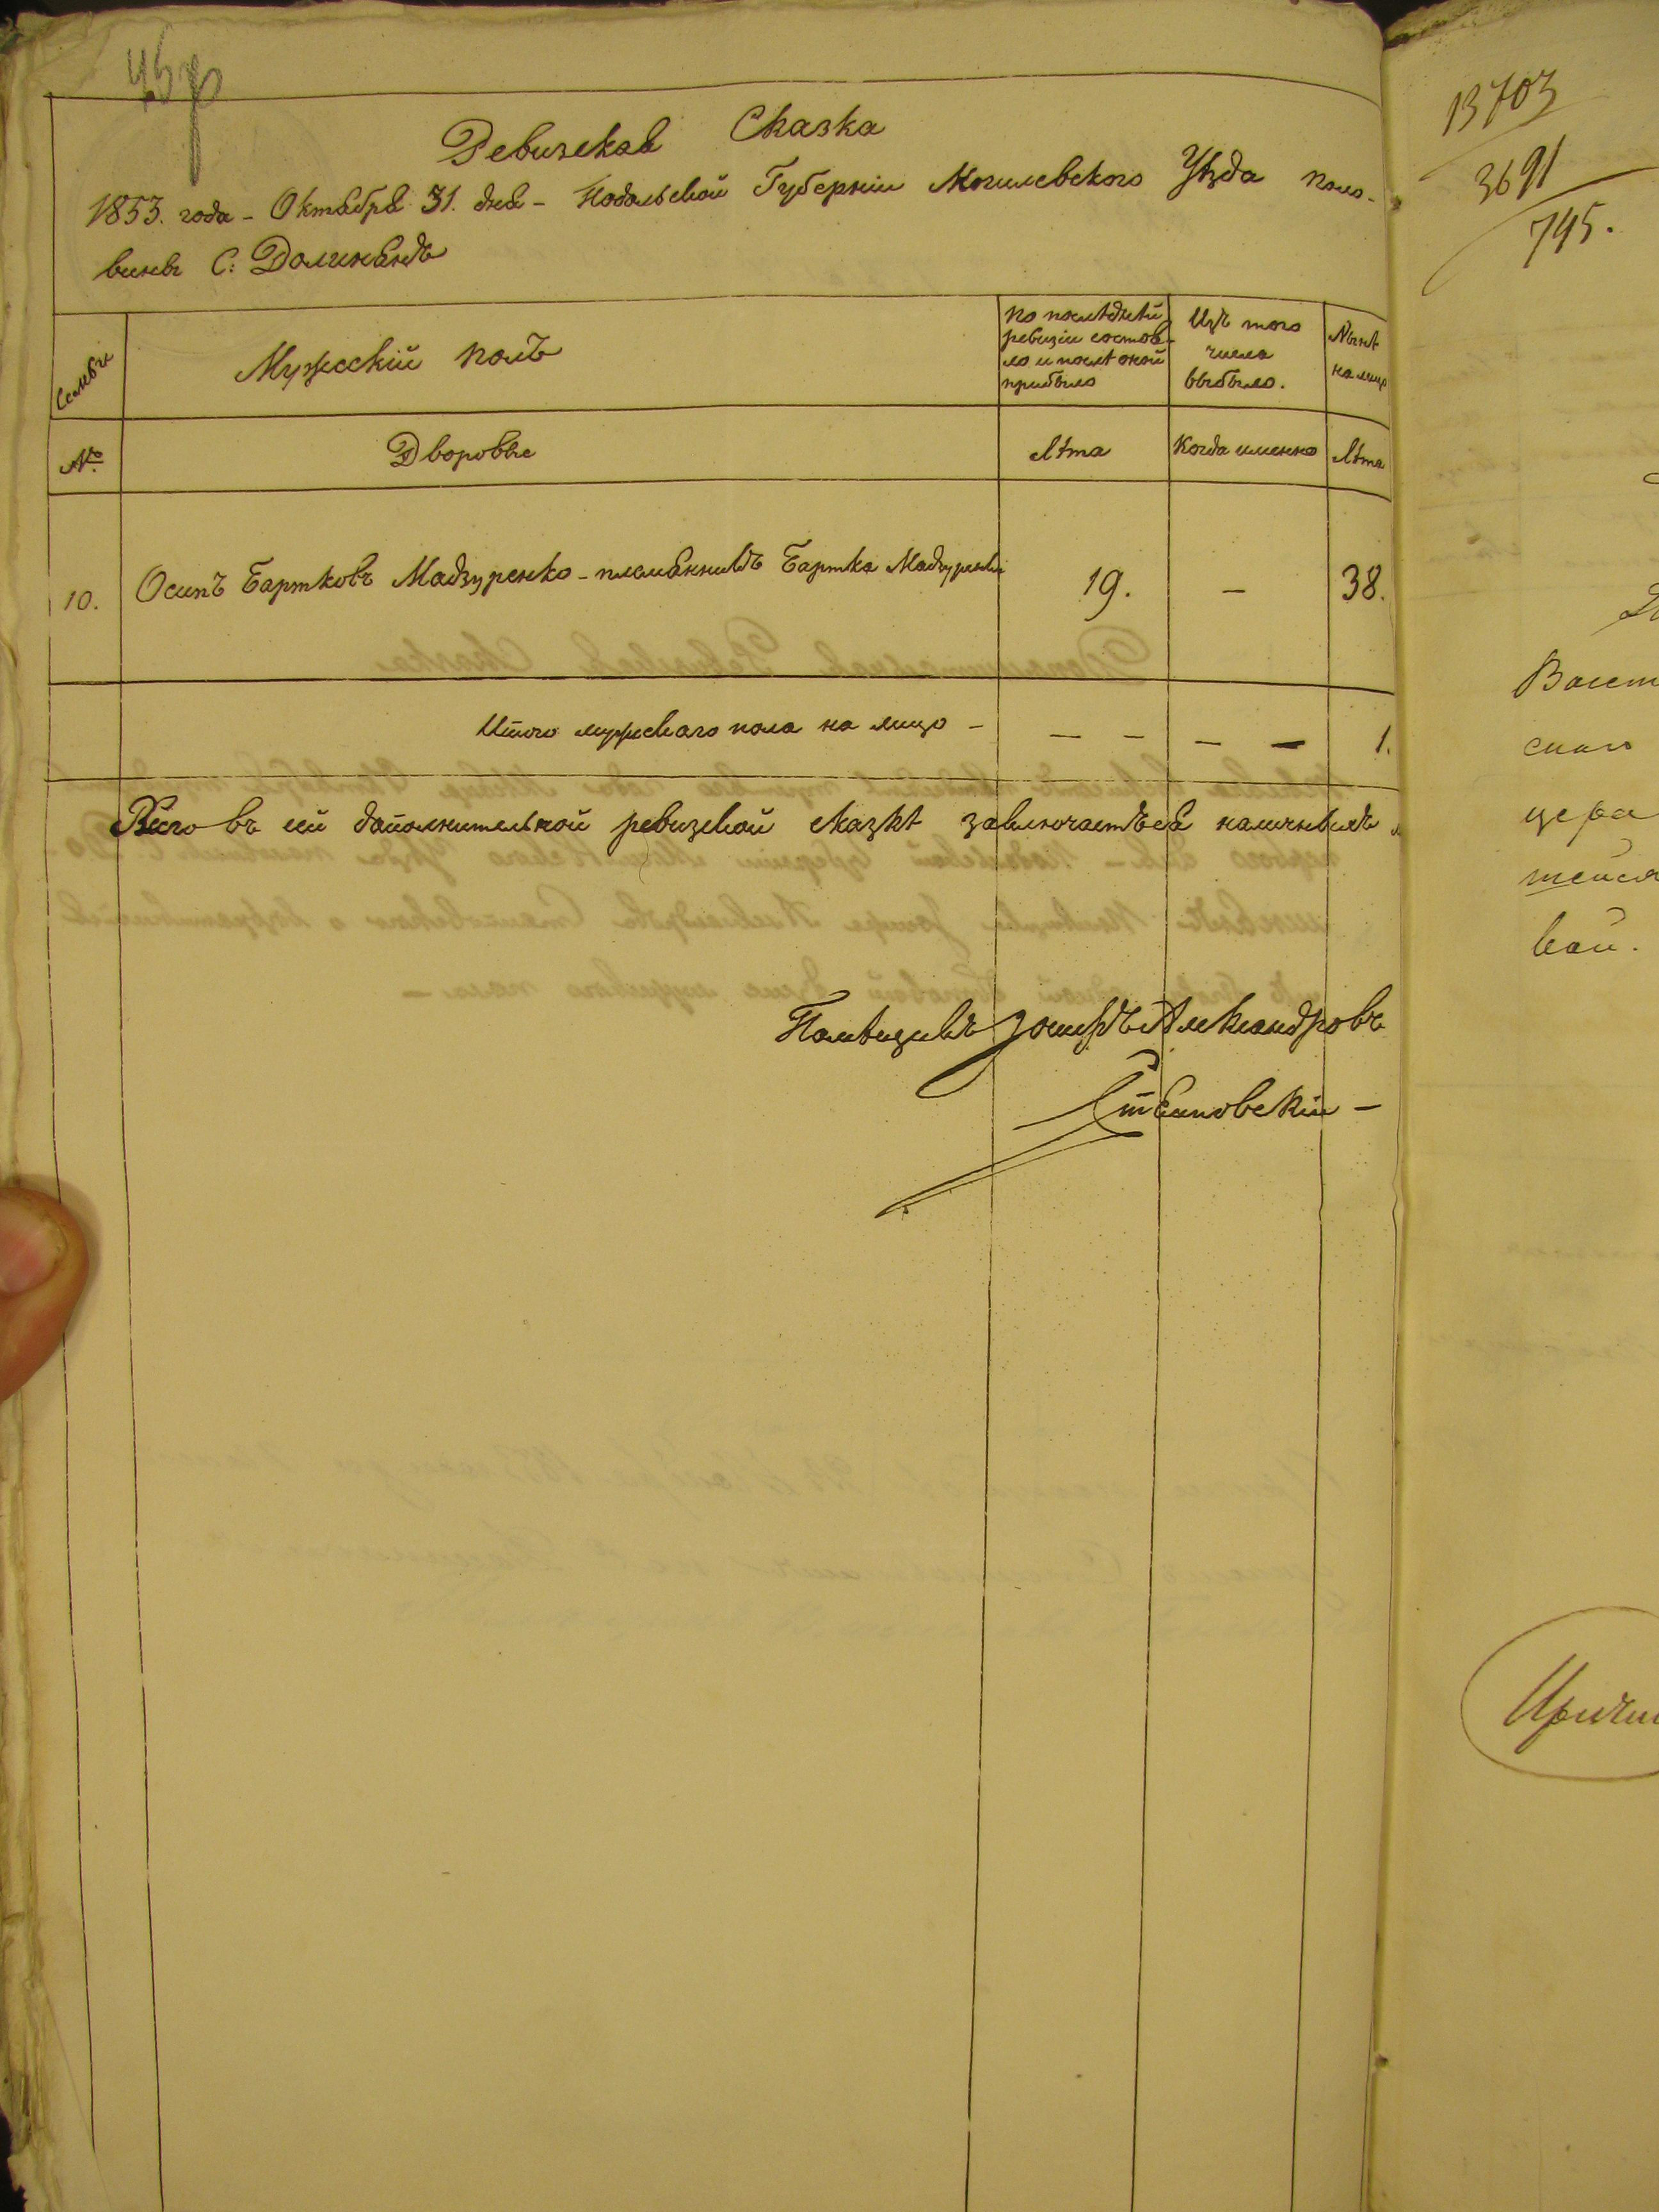 Ревизская Сказка
1853. года - Октября 31. дня - Подольской Губерніи Могилевского Уѣзда поло-
вины С: Долинянъ
Семьи
Мужескій полъ
по послѣдней
ревизіи состоя-
ло и послѣ оной
прибыло
Изъ того
числа
выбыло.
Нынѣ
на лицо
№
Дворовые
Лѣта
Когда именно
Лѣта
10.
Осипъ Бартковъ Мадзуренко - племянникъ Бартка Мадзуренки
19.
—
38.
Итого мужескаго пола на лицо -
— — — —
1.
Всего въ сей дополнительной ревизской сказкѣ заключается наличныхъ
Помѣщикъ Іосифъ Александровъ
Стемповскій —
13703
3691
745.
Восст
цера
вой.